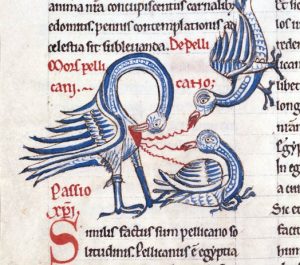 anima concupiscentiis carnalib;
edomitis, pennis contemplationis ad
celestia sit sublevanda. De pelli
Mors pelli
cani: cano:
Passio
xp̄i
Similis factus sum pellicano so
litudinis. Pellicanus ē egyptia
In eg
Sic et